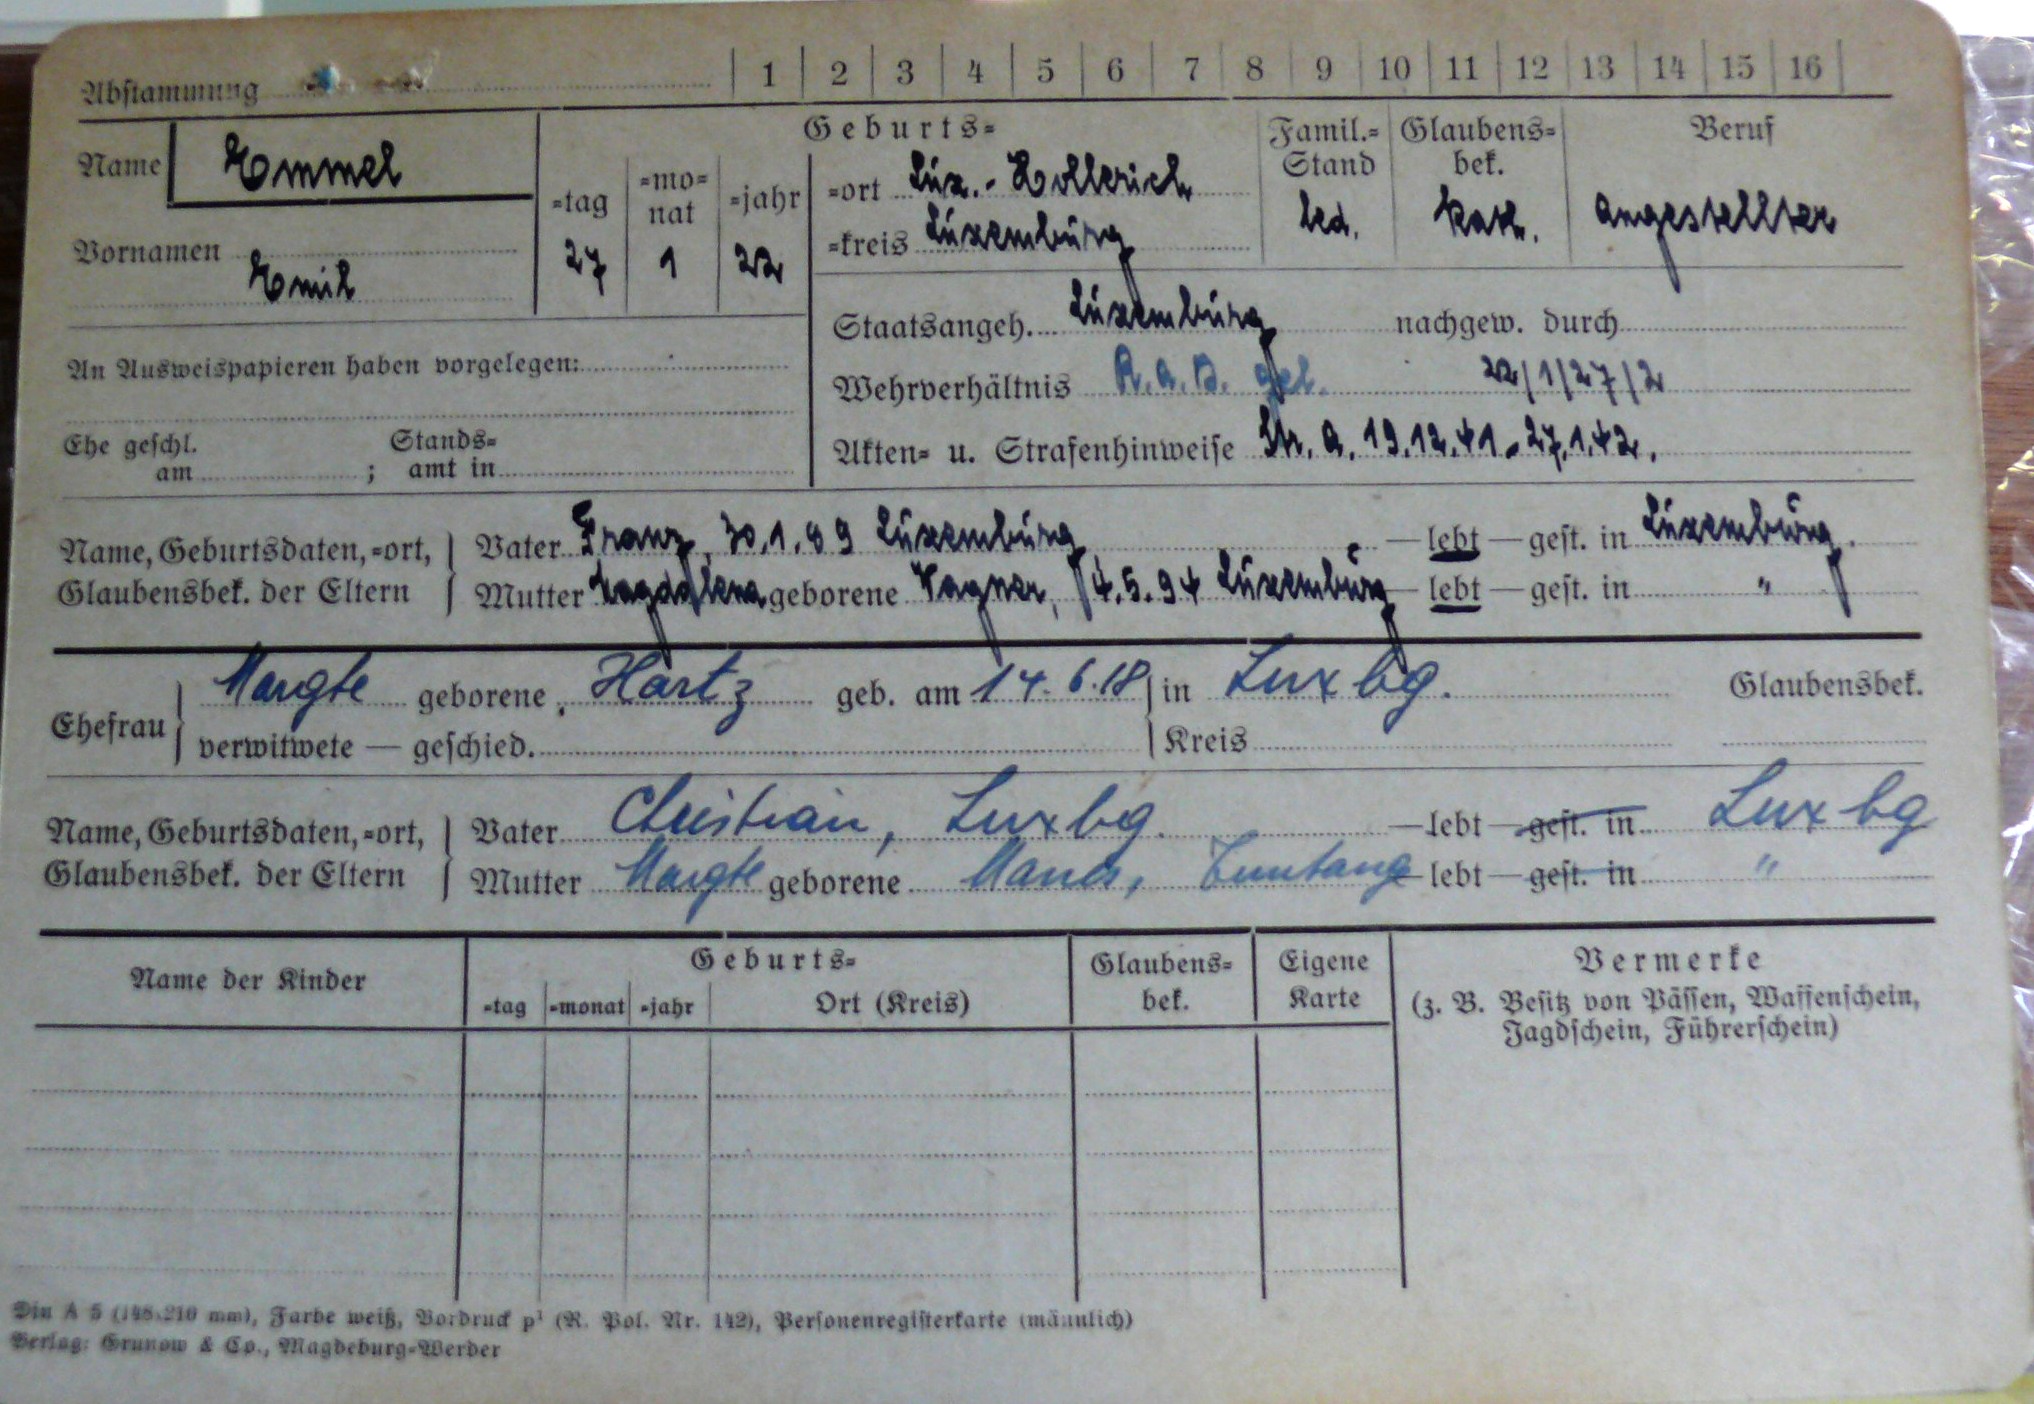 Abstammung 1 2 3 4 5 6 7 8 9 10 11 12 13 14 15 16
Name Emmel
Vornamen Emil
Geburts=
=tag =mo=nat =jahr
27 1 22
=ort Lux.-Hollerich
=kreis Luxemburg
Famil.=Stand led.
Glaubens=bek. kath.
Beruf Angestellter
Staatsangeh. Luxemburg nachgew. durch
An Ausweispapieren haben vorgelegen:
Wehrverhältnis R.A.D. gel. 22/1/27/2
Akten= u. Strafenhinweise Str. A. 19.12.41.-27.1.42.
Ehe geschl. am ; Stands=amt in
Name, Geburtsdaten, =ort, Glaubensbek. der Eltern
Vater Franz, 30.1.89 Luxemburg — lebt — gest. in Luxemburg.
Mutter Magdalena geborene Wagner, 14.5.94 Luxemburg — lebt — gest. in "
Ehefrau Margte geborene Hartz geb. am 14.6.18 in Luxbg. Glaubensbek.
verwitwete — geschied. Kreis
Name, Geburtsdaten, =ort, Glaubensbek. der Eltern
Vater Christian, Luxbg. — lebt — gest. in Luxbg
Mutter Margte geborene — lebt — gest. in "
Name der Kinder
Geburts=
=tag =monat =jahr Ort (Kreis)
Glaubens=bek.
Eigene Karte
Vermerke
(z. B. Besitz von Pässen, Waffenschein,
Jagdschein, Führerschein)
Din A 5 (148×210 mm), Farbe weiß, Vordruck p¹ (R. Pol. Nr. 142), Personenregisterkarte (männlich)
Verlag: Grunow & Co., Magdeburg=Werder